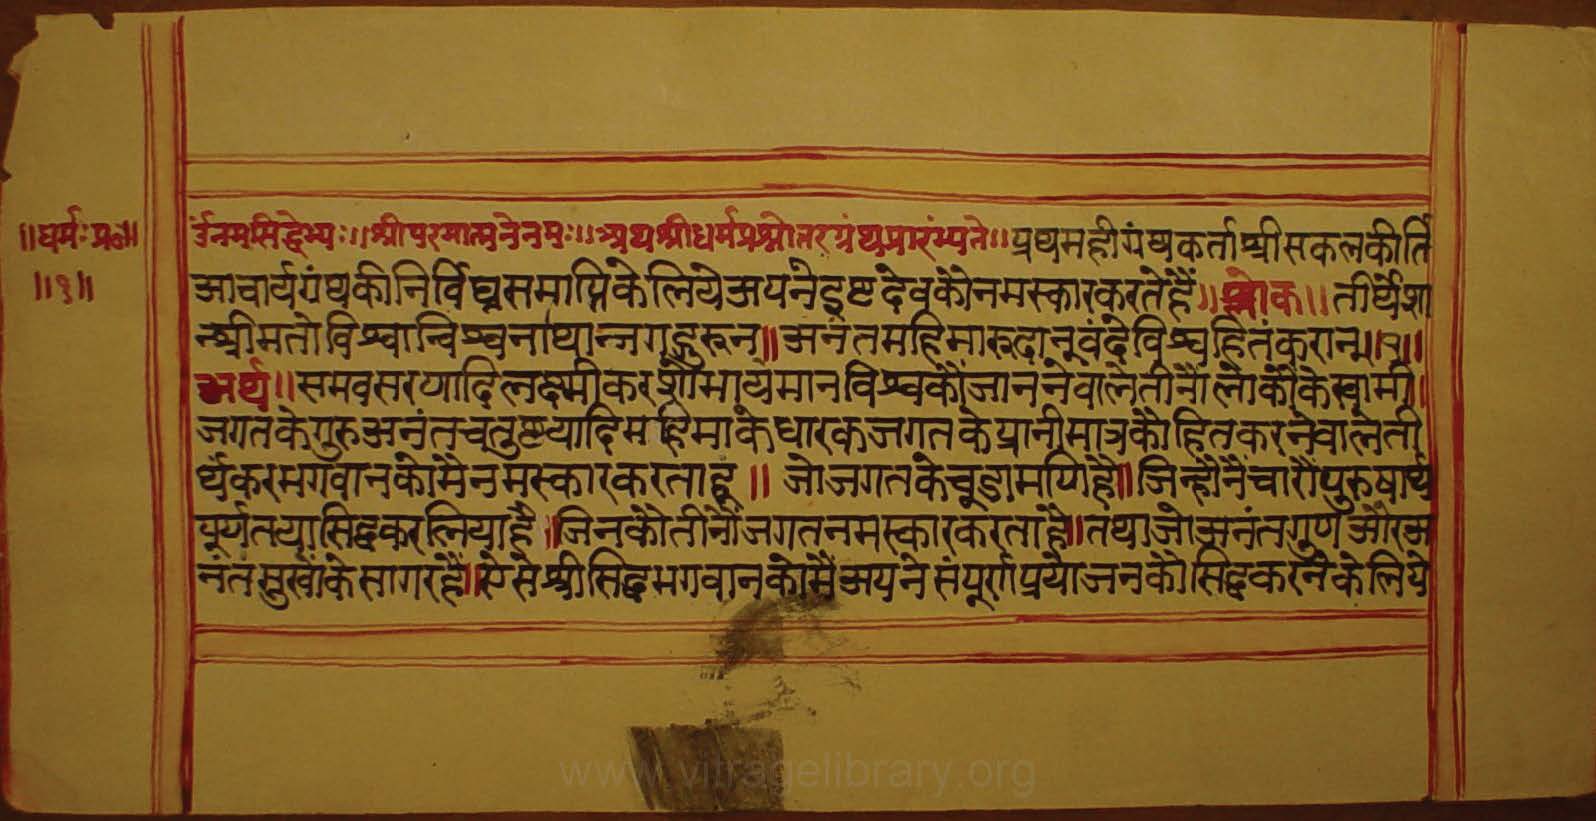 ॥धर्मः प्र०॥
॥१॥
ॐनमःसिद्धेभ्यः॥श्रीपरमात्मनेनमः॥अथश्रीधर्मप्रश्नोत्तरग्रंथप्रारंभ्यते॥प्रथमहीग्रंथकर्ताश्रीसकलकीर्ति
आचार्यग्रंथकीनिर्विघ्नसमाप्तिकेलियेअपनेइष्टदेवकोंनमस्कारकरतेहैं॥श्लोक॥तीर्थेशा
न्श्रीमतोविश्वान्विश्वनाथान्जगद्गुरून्॥अनंतमहिमारूढान्वंदेविश्वहितंकरान्॥१॥
अर्थ॥समवसरणादिलक्ष्मीकरशोभायमानविश्वकोंजाननेवालेतीनोंलोकोंकेस्वामी।
जगतकेगुरुअनंतचतुष्टयादिमहिमाकेधारकजगतकेप्रानीमात्रकोंहितकरनेवालेती
र्थंकरभगवानकोंमैनमस्कारकरताहूं॥ जोजगतकेचूडामणिहैं॥जिन्होंनैचारोंपुरुषार्थ
पूर्णतयासिद्धकरलियाहै॥जिनकोंतीनोंजगतनमस्कारकरताहै॥तथाजोअनंतगुणऔरअ
नंतसुखोंकेसागरहैं॥ऐसेश्रीसिद्धभगवानकोंमैंअपनेसंपूर्णप्रयोजनकोंसिद्धकरनेकेलिये
www.vitragelibrary.org